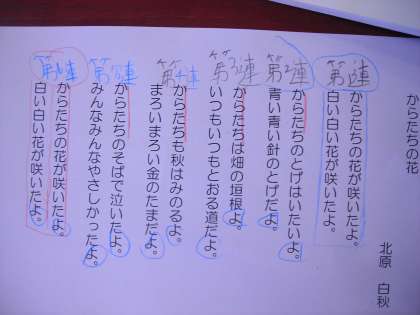 からたちの花
北原 白秋
第1連
からたちの花が咲いたよ。
白い白い花が咲いたよ。
第2連
からたちのとげはいたいよ。
青い青い針のとげだよ。
第3連
からたちは畑の垣根よ。
いつもいつもとおる道だよ。
第4連
からたちも秋はみのるよ。
まろいまろい金のたまだよ。
第5連
からたちのそばで泣いたよ。
みんなみんなやさしかったよ。
第6連
からたちの花が咲いたよ。
白い白い花が咲いたよ。